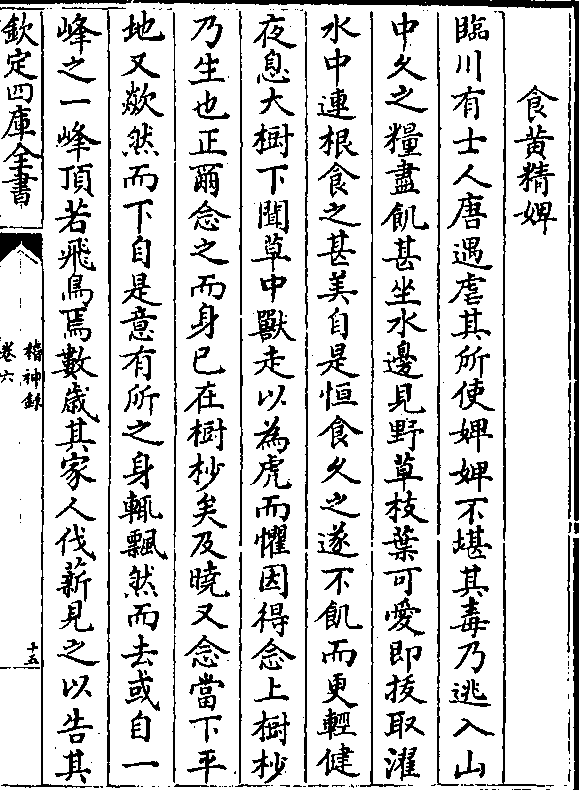 食黄精婢
臨川有士人唐遇虐其所使婢婢不堪其毒乃逃入山
中久之糧盡飢甚坐水邊見野草枝葉可愛即拔取濯
水中連根食之甚美自是恒食久之遂不飢而更輕健
夜息大樹下聞草中獸走以為虎而懼因得念上樹杪
乃生也正爾念之而身已在樹杪矣及曉又念當下平
地又歘然而下自是意有所之身輒飄然而去或自一
峰之一峰頂若飛鳥焉數歲其家人伐薪見之以告其
欽定四庫全書
稽神錄
卷六
十五